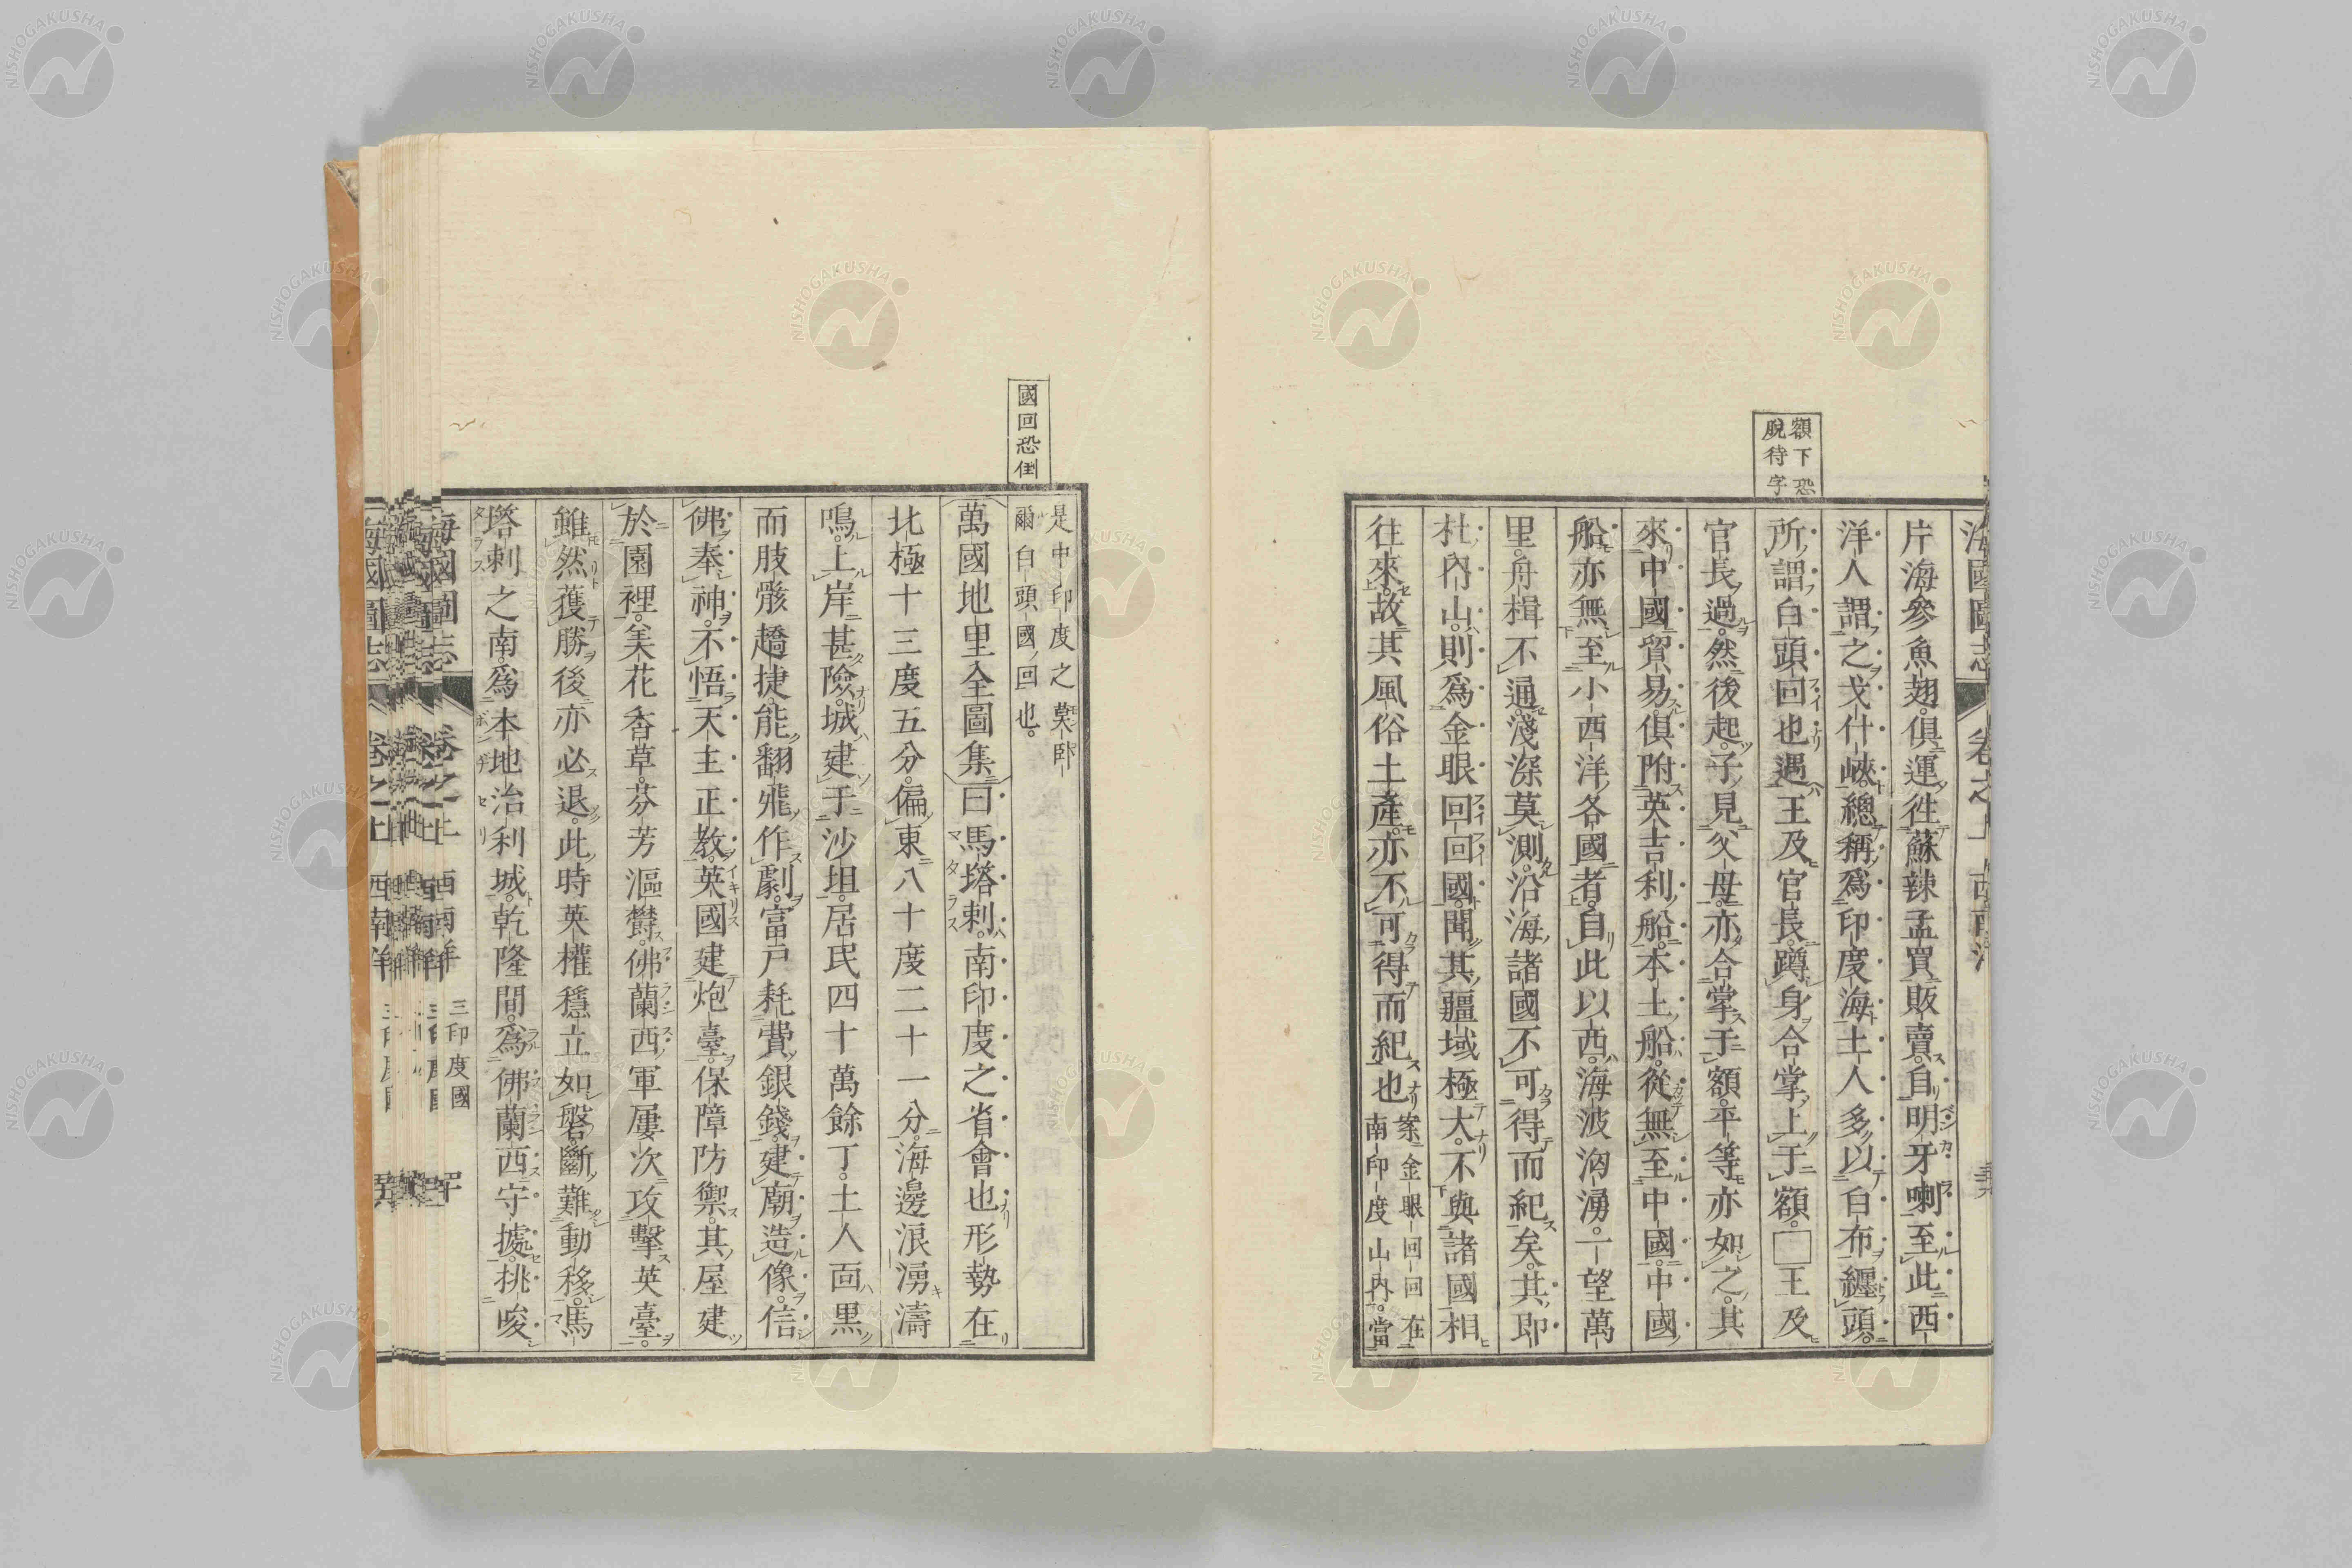 額下恐
脫待字
片海參魚翅俱運往蘇辣孟買販賣自明牙喇至此西
洋人謂之戈什峽總稱爲印度海土人多以白布纏頭
所謂白頭回也遇王及官長蹲身合掌上于額□王及
官長過然後起子見父母亦合掌于額平等亦如之其
來中國貿易俱附英吉利船本土船從無至中國中國
船亦無至小西洋各國者自此以西海波洶湧一望萬
里舟楫不通淺深莫測沿海諸國不可得而紀矣其卽
杜內山則爲金眼回回國聞其疆域極大不與諸國相
往來故其風俗土產亦不可得而紀也
案金眼回回在
南印度山內當
國回恐倒
是中印度之莫臥
爾白頭國回也
萬國地里全圖集曰馬塔剌南印度之省會也形勢在
北極十三度五分偏東八十度二十一分海邊浪湧濤
鳴上岸甚險城建于沙坦居民四十萬餘丁土人面黑
而肢骸趫捷能翻飛作劇富戶耗費銀錢建廟造像信
佛奉神不悟天主正教英國建炮臺保障防禦其屋建
於園裡美花香草芬芳漚鬱佛蘭西軍屢次攻擊英臺
雖然獲勝後亦必退此時英權穩立如磐斷難動移馬
塔剌之南爲本地治利城乾隆間爲佛蘭西守據挑唆
海國圖志 卷之 西南洋 三印度國